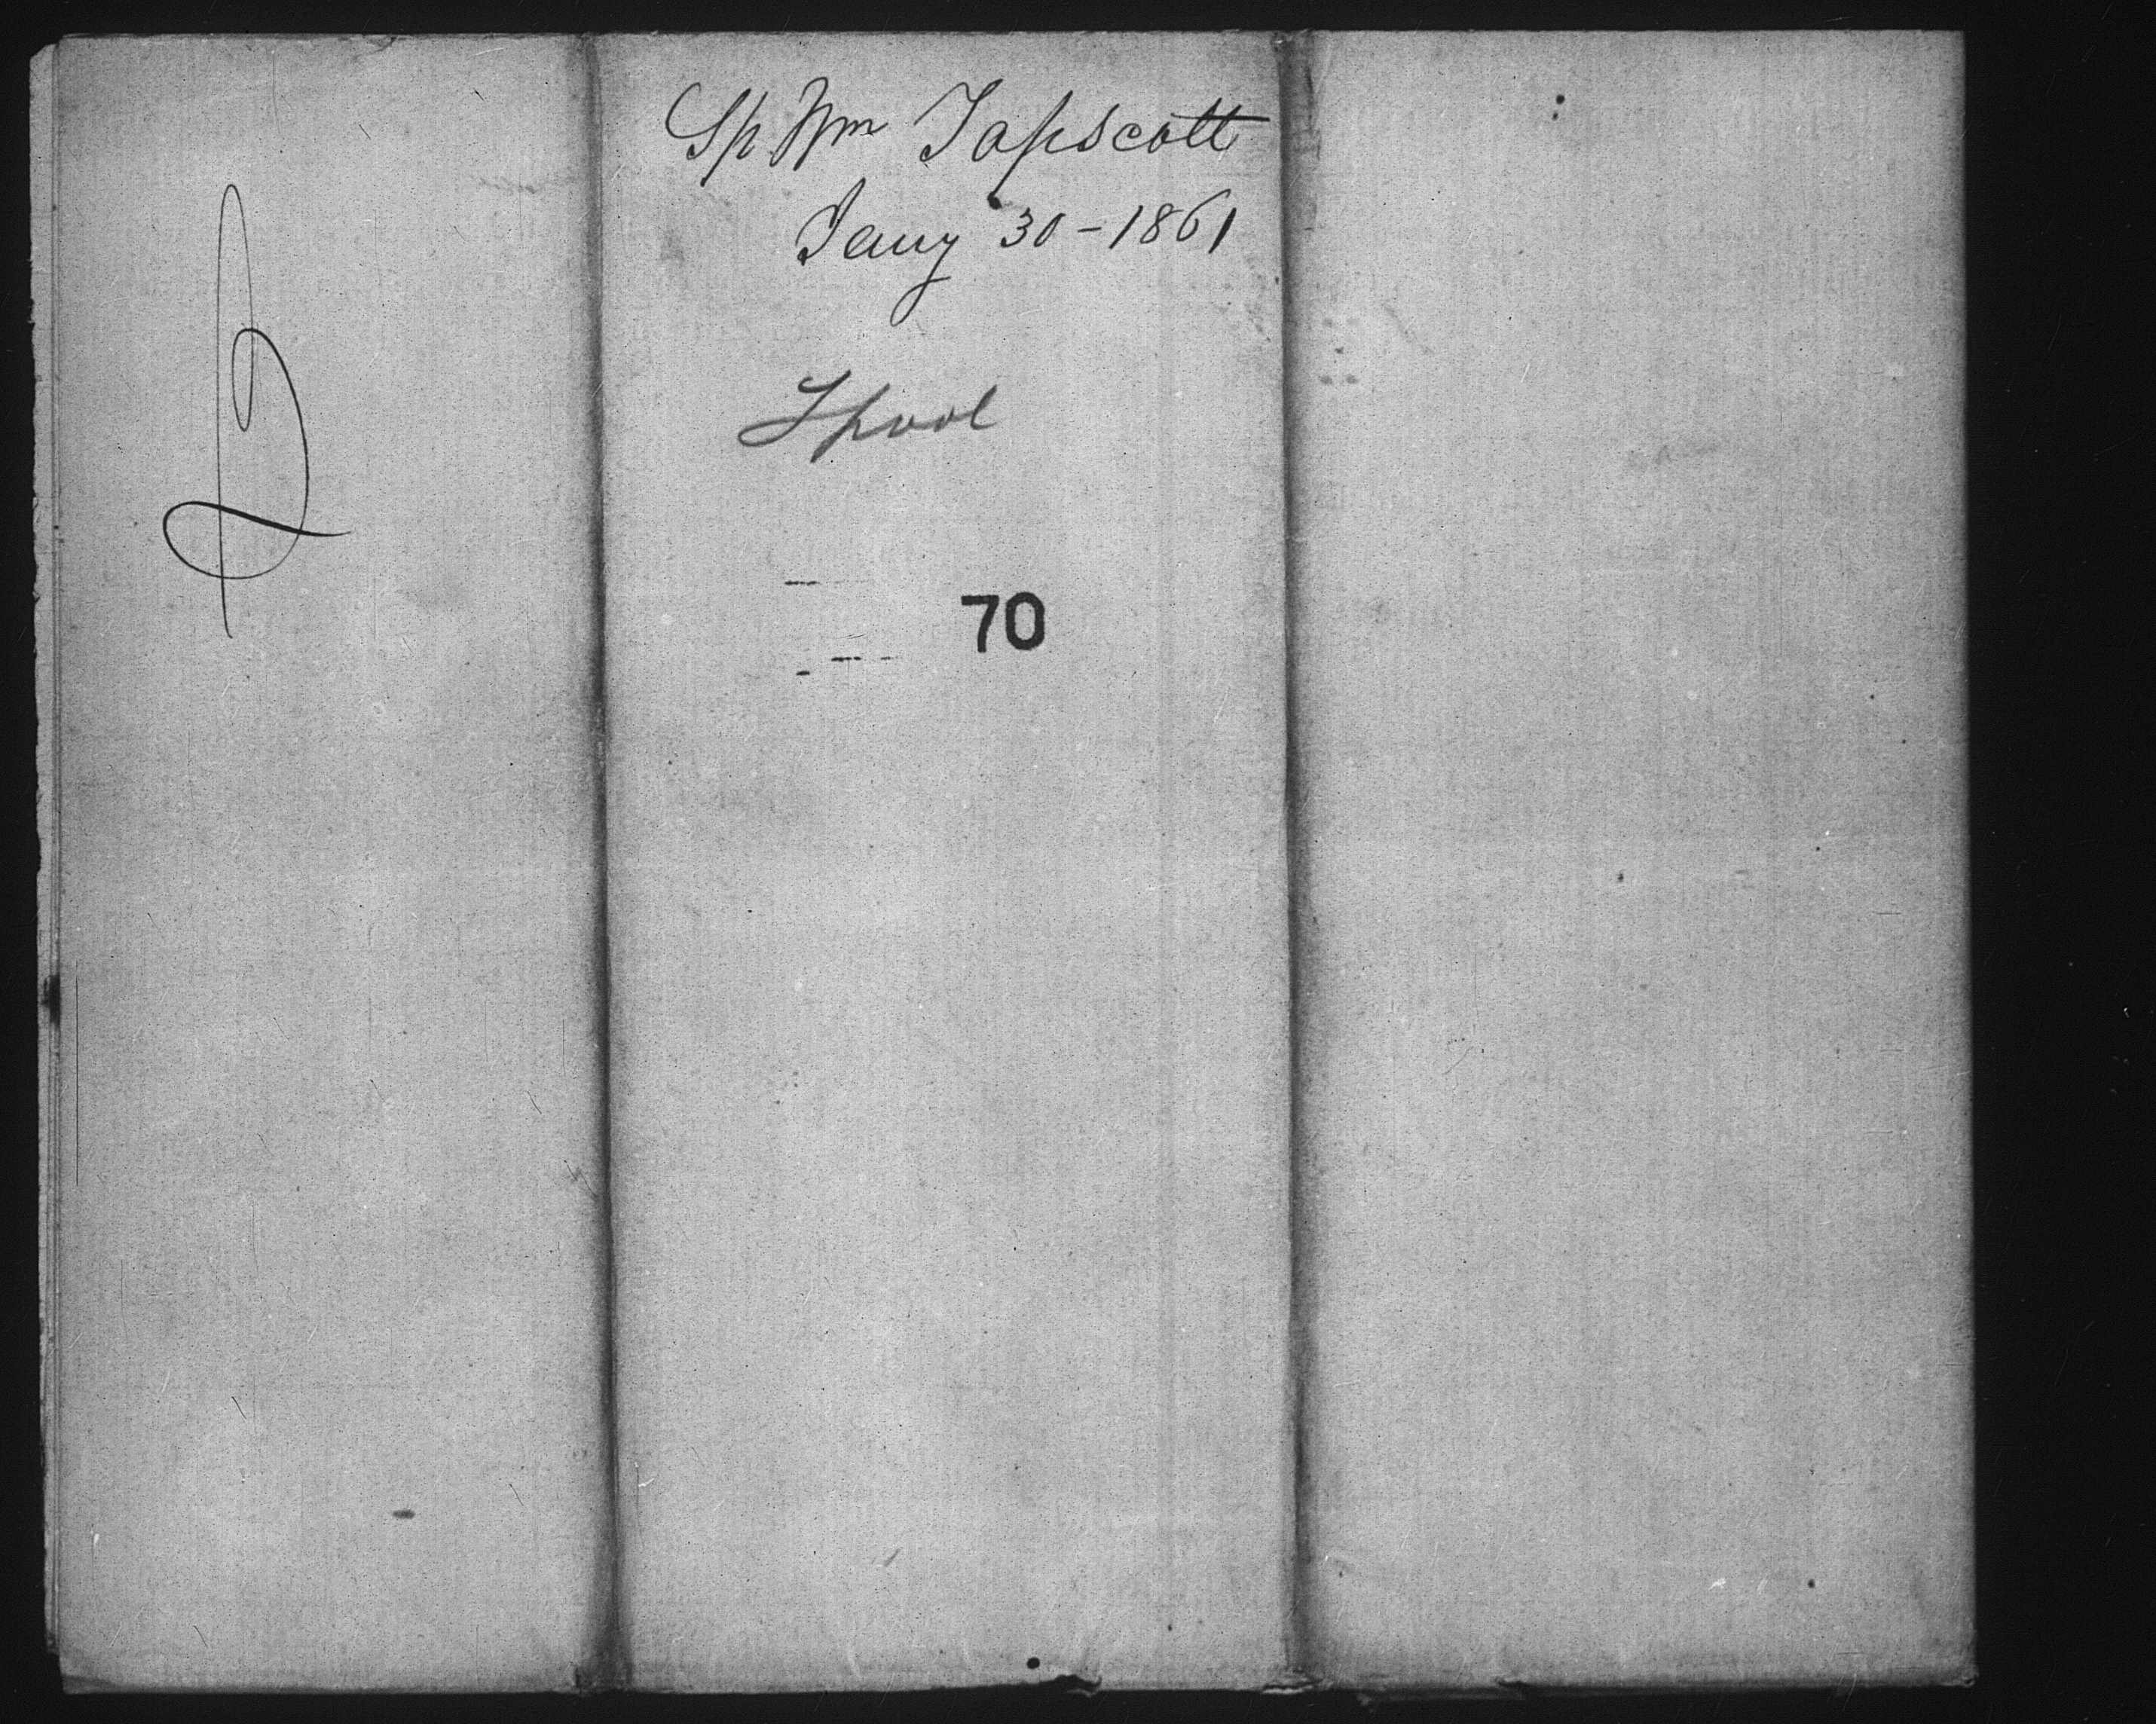 Sp Wm Tapscott
Jany 30 - 1861
Lpool
70